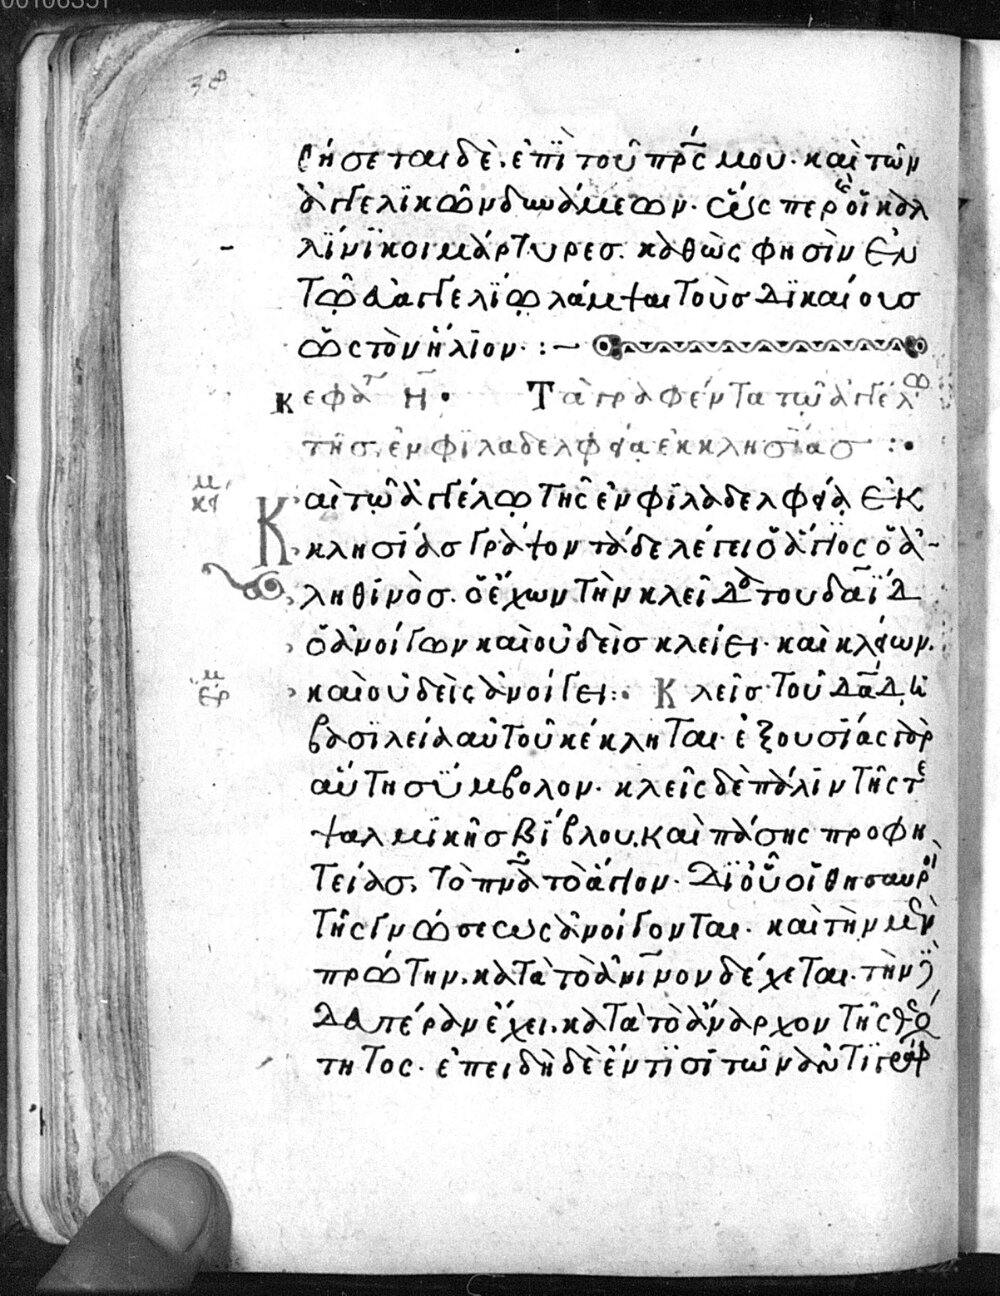 00106351
38
ρήσεται δὲ. ἐπὶ τοῦ πρ̅ς μου· καὶ τῶν
ἀγγελϊκῶν δυνάμεων. ὥσπερ οἱ καλ
λΐνϊκοι μάρτυρες. καθὼς φησὶν ἐν
τῶ εὐαγγελΐω λάμψαι τοὺσ δϊκαίουσ
ὡς τὸν ἥλϊον· :~
κεφαλ η̅· Τὰ γραφέντα τῶ ἀγγέλω
τῆσ ἐν φϊλαδελφεία ἐκκλησΐασ :·
μ
κϛ
Καὶ τῶ ἀγγέλω τῆς ἐν φϊλαδελφεία ἐκ
κλησΐασ γράψον τάδε λέγει ὁ ἅγϊος ὁ ἀ-
ληθϊνὸσ. ὁ ἔχων τὴν κλεῖδα τοῦ δα̅δ
ὁ ἀνοίγων καὶ οὐδεὶσ κλείει· καὶ κλείων.
μ
ἑρ
καὶ οὐδεὶς ἀνοίγει:· Κλεὶσ τοῦ δα̅δ ἡ
βασϊλεία αὐτοῦ κέκληται· ἐξουσΐας γὰρ
αὕτη σύμβολον· κλεῖς δὲ πάλϊν τῆς τε
ψαλμϊκῆσ βΐβλου. καὶ πάσης προφη
τείασ. τὸ πν̅α τὸ ἅγϊον· δϊ οὗ οἱ θησαυροὶ
τῆς γνώσεως ἀνοίγονται. καὶ τὴν μὲν
πρώτην. κατὰ τὸ ἀνι̅νον δέχεται. τὴν
δευτέραν ἔχει. κατὰ τὸ ἄναρχον τῆς θεό
τητος. ἐπειδὴ δὲ ἔν τϊσϊ τῶν ἀντϊγράφ